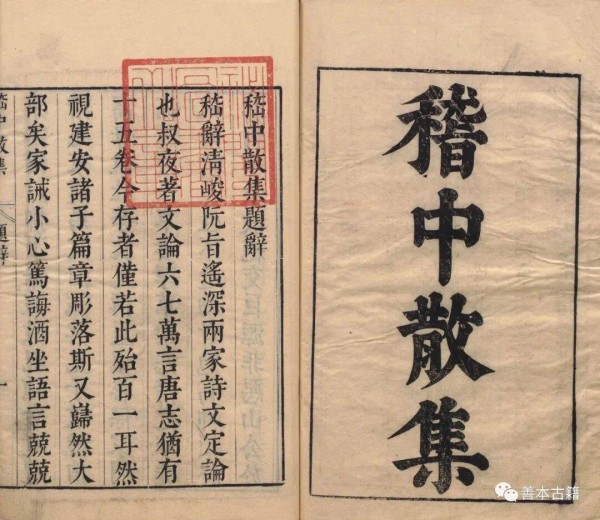 嵇中散集
嵇中散集題辭
嵇辭清峻阮旨遙深兩家詩文定論
也叔夜著文論六七萬言唐志猶有
十五卷今存者僅若此殆百一耳然
視建安諸子篇章彫落斯又巋然大
部矣家誡小心篤誨酒坐語言兢兢
嵇中散集 題辭 一
善本古籍